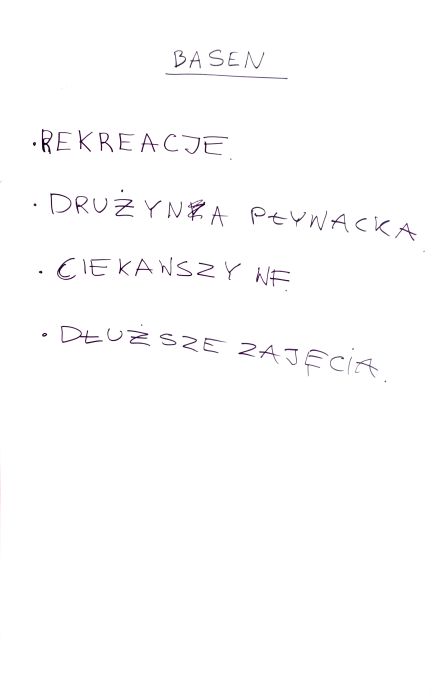 BASEN
• REKREACJE.
• DRUŻYNA PŁYWACKA.
• CIEKAWSZY WF.
• DŁUŻSZE ZAJĘCIA.